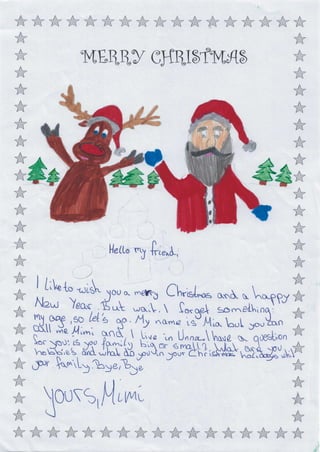 MERRY CHRISTMAS
Hello my friend,
I like to wish you a merry Christmas and a happy
New Year. But wait. I forget something:
my age, so let's go. My name is Mia but you can
call me Mimi and I live in Unna. I have a question
for you: is you family big or small? What are you
hobbies and what do you in your Christmas holidays with
your family. Bye, Bye
YOURS, Mimi